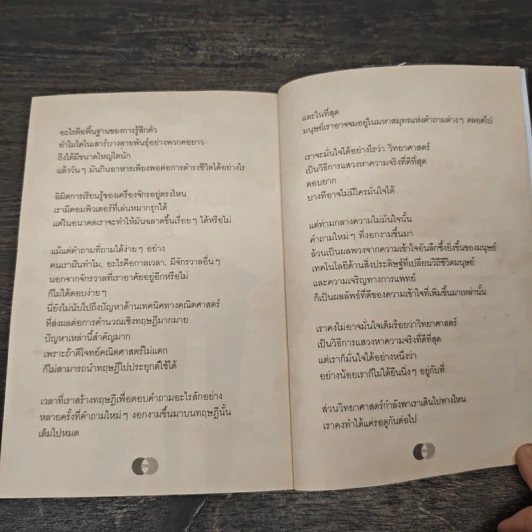 อะไรคือพื้นฐานของการรู้สึกตัว
ทำไมไดโนเสาร์บางสายพันธุ์อย่างพวกคอยาว
ถึงได้มีขนาดใหญ่โตนัก
แล้ววันๆ มันกินอาหารเพียงพอต่อการดำรงชีวิตได้อย่างไร
ลิมิตการเรียนรู้ของเครื่องจักรอยู่ตรงไหน
เรามีคอมพิวเตอร์ที่เล่นหมากรุกได้
แต่ในอนาคตเราจะทำให้มันฉลาดขึ้นเรื่อยๆ ได้หรือไม่
แม้แต่คำถามที่ถามได้ง่ายๆ อย่าง
คนเราฝันทำไม, อะไรคือกาลเวลา, มีจักรวาลอื่นๆ
นอกจากจักรวาลที่เราอาศัยอยู่อีกหรือไม่
ก็ไม่ได้ตอบง่ายๆ
นี่ยังไม่นับไปถึงปัญหาด้านเทคนิคทางคณิตศาสตร์
ที่ส่งผลต่อการคำนวณเชิงทฤษฎีมากมาย
ปัญหาเหล่านี้สำคัญมาก
เพราะถ้าตีโจทย์คณิตศาสตร์ไม่แตก
ก็ไม่สามารถนำทฤษฎีไปประยุกต์ใช้ได้
เวลาที่เราสร้างทฤษฎีเพื่อตอบคำถามอะไรสักอย่าง
หลายครั้งที่คำถามใหม่ๆ งอกงามขึ้นมาบนทฤษฎีนั้น
เต็มไปหมด
และในที่สุด
มนุษย์เราอาจจมอยู่ในมหาสมุทรแห่งคำถามต่างๆ ตลอดไป
เราจะมั่นใจได้อย่างไรว่า วิทยาศาสตร์
เป็นวิธีการแสวงหาความจริงที่ดีที่สุด
ตอบยาก
บางทีอาจไม่มีใครมั่นใจได้
แต่ท่ามกลางความไม่มั่นใจนั้น
คำถามใหม่ๆ ที่งอกงามขึ้นมา
ล้วนเป็นผลพวงจากความเข้าใจอันลึกซึ้งยิ่งขึ้นของมนุษย์
เทคโนโลยีด้านสิ่งประดิษฐ์ที่เปลี่ยนวิถีชีวิตมนุษย์
และความเจริญทางการแพทย์
ก็เป็นผลลัพธ์ที่ดีของความเข้าใจที่เพิ่มขึ้นมาเหล่านั้น
เราคงไม่อาจมั่นใจเต็มร้อยว่าวิทยาศาสตร์
เป็นวิธีการแสวงหาความจริงที่ดีที่สุด
แต่เราก็มั่นใจได้อย่างหนึ่งว่า
อย่างน้อยเราก็ไม่ได้ยืนนิ่งๆ อยู่กับที่
ส่วนวิทยาศาสตร์กำลังพาเราเดินไปทางไหน
เราคงทำได้แค่รอดูกันต่อไป